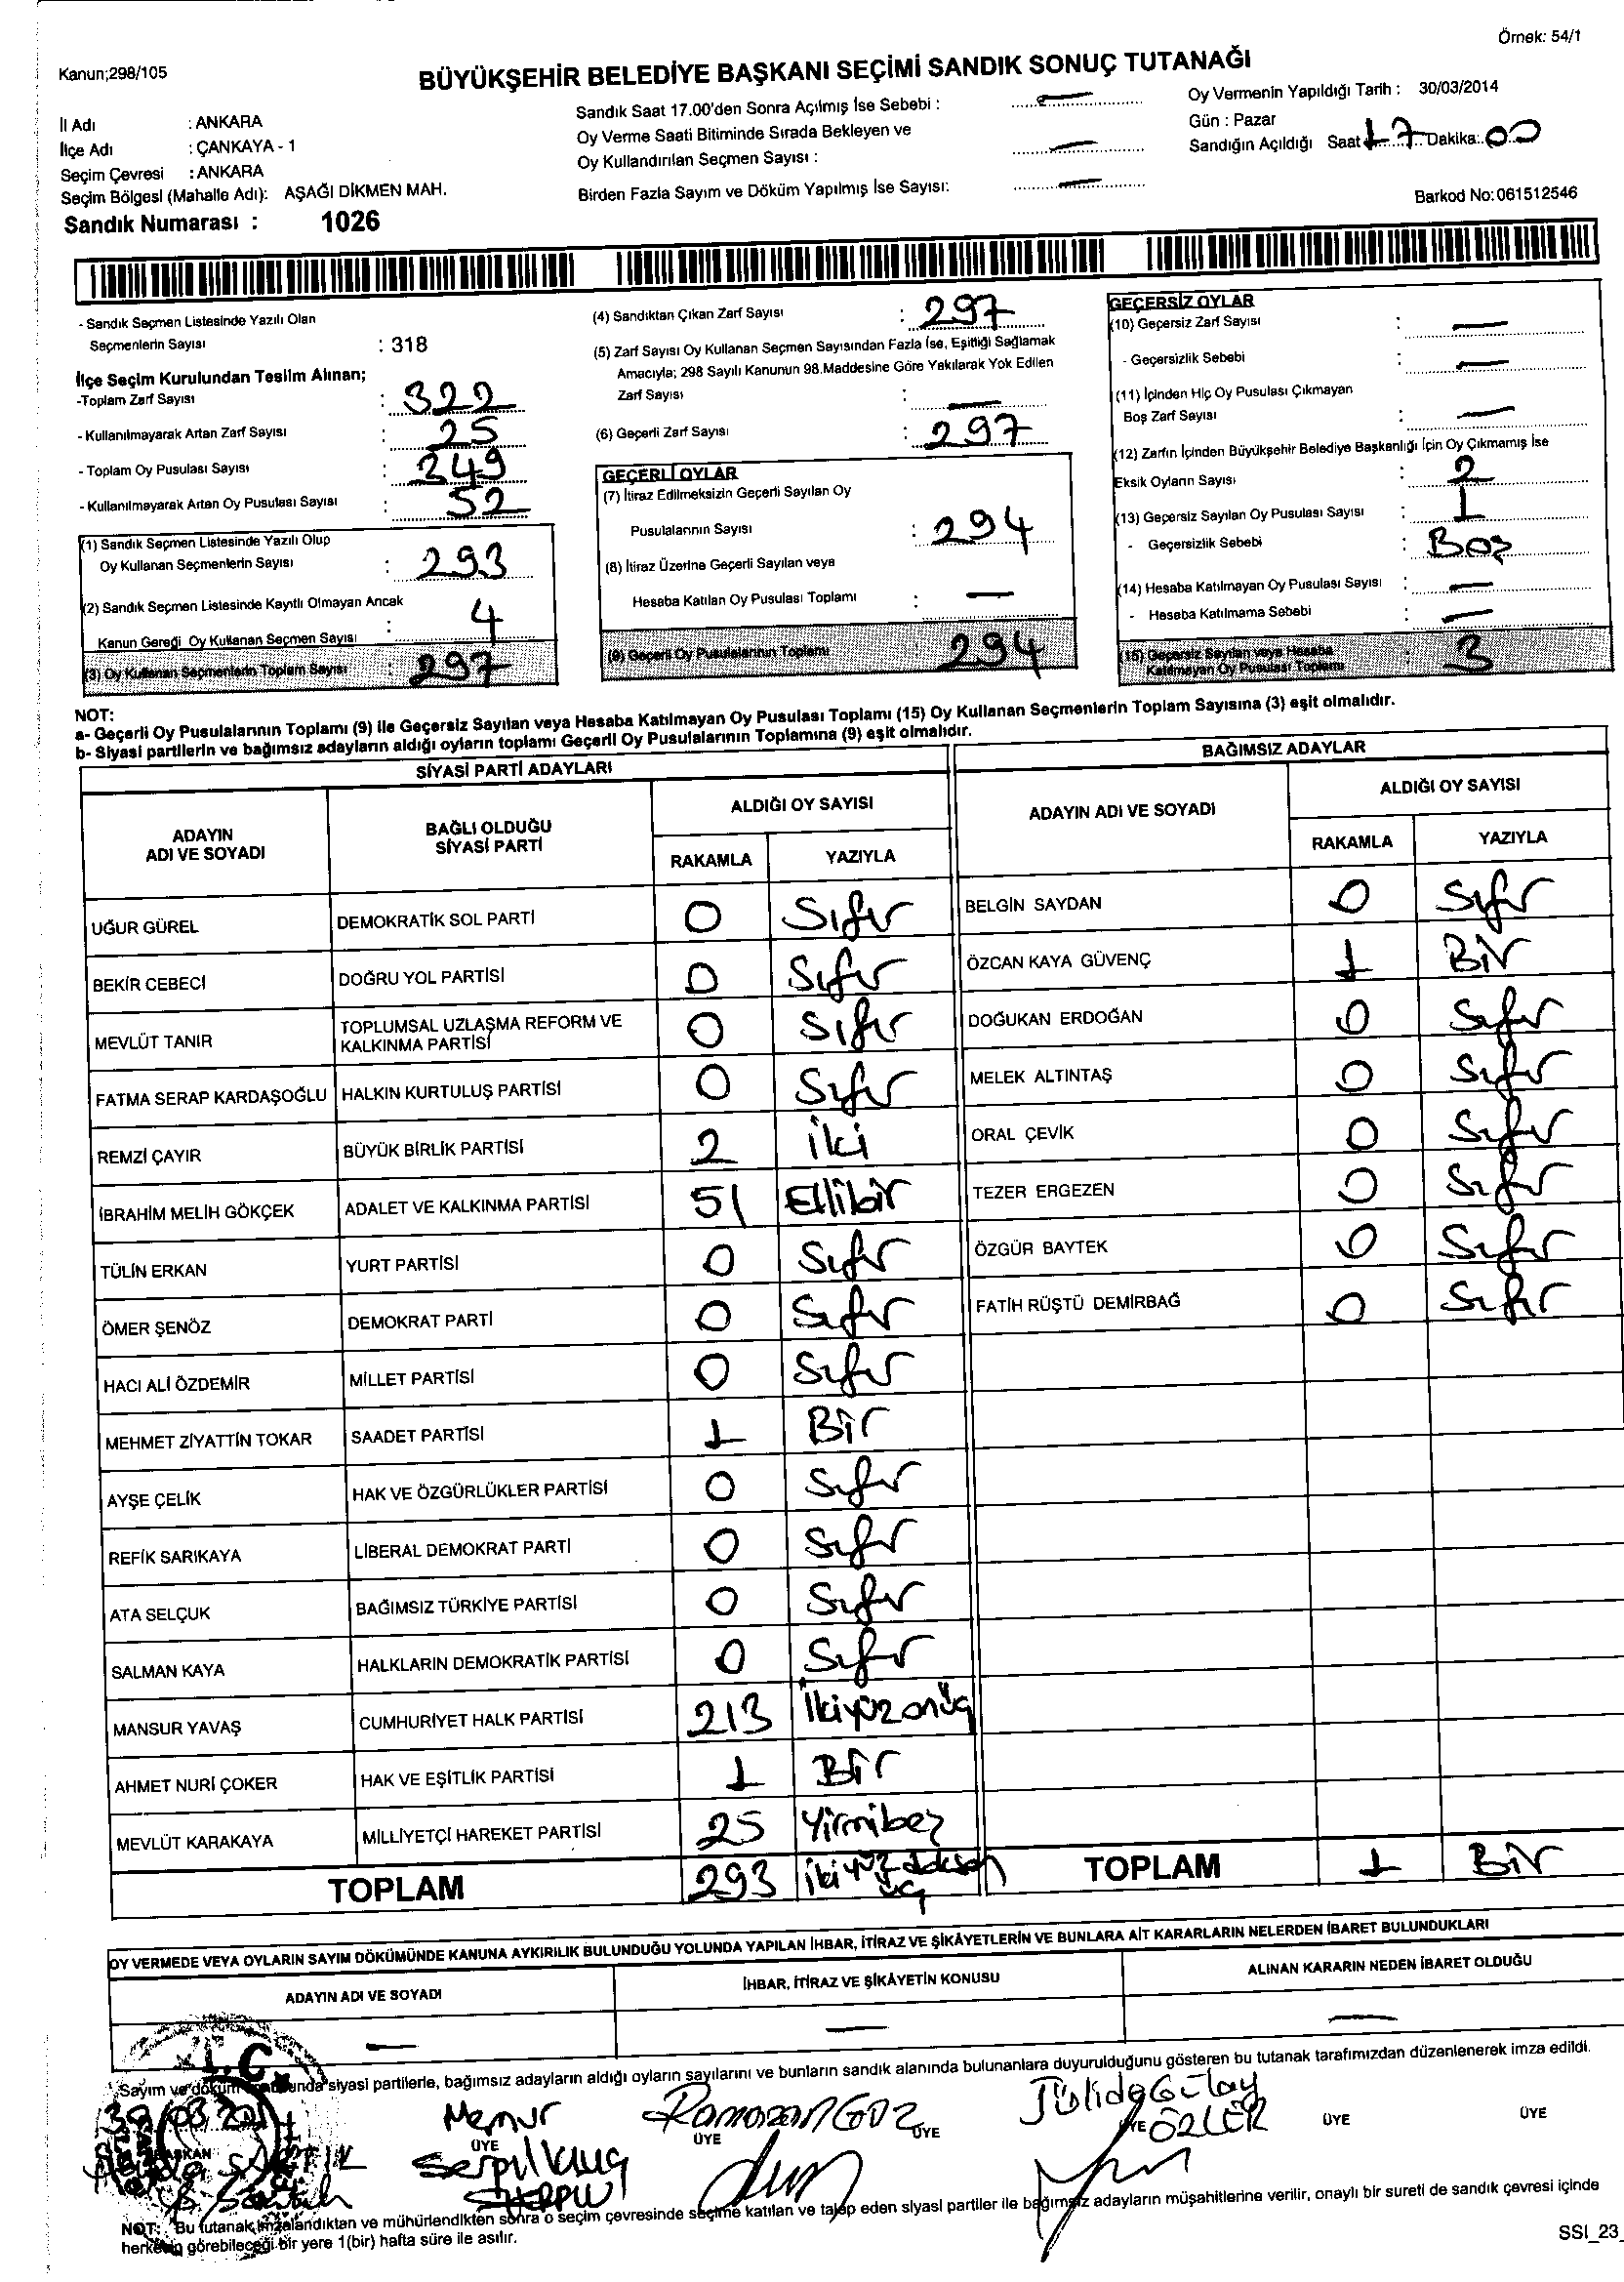 Örnek: 54/1
Kanun;298/105
BÜYÜKŞEHİR BELEDİYE BAŞKANI SEÇİMİ SANDIK SONUÇ TUTANAĞI
İl Adı : ANKARA
İlçe Adı : ÇANKAYA - 1
Seçim Çevresi : ANKARA
Seçim Bölgesi (Mahalle Adı): AŞAĞI DİKMEN MAH.
Sandık Numarası : 1026
Sandık Saat 17.00'den Sonra Açılmış İse Sebebi : —
Oy Verme Saati Bitiminde Sırada Bekleyen ve
Oy Kullandırılan Seçmen Sayısı : —
Birden Fazla Sayım ve Döküm Yapılmış İse Sayısı: —
Oy Vermenin Yapıldığı Tarih : 30/03/2014
Gün : Pazar
Sandığın Açıldığı Saat 17 Dakika: 00
Barkod No:061512546
- Sandık Seçmen Listesinde Yazılı Olan
Seçmenlerin Sayısı : 318
İlçe Seçim Kurulundan Teslim Alınan;
-Toplam Zarf Sayısı : 322
- Kullanılmayarak Artan Zarf Sayısı : 25
- Toplam Oy Pusulası Sayısı : 349
- Kullanılmayarak Artan Oy Pusulası Sayısı : 52
(1) Sandık Seçmen Listesinde Yazılı Olup
Oy Kullanan Seçmenlerin Sayısı : 293
(2) Sandık Seçmen Listesinde Kayıtlı Olmayan Ancak
Kanun Gereği Oy Kullanan Seçmen Sayısı : 4
(3) Oy Kullanan Seçmenlerin Toplam Sayısı : 297
(4) Sandıktan Çıkan Zarf Sayısı : 297
(5) Zarf Sayısı Oy Kullanan Seçmen Sayısından Fazla İse, Eşitliği Sağlamak
Amacıyla; 298 Sayılı Kanunun 98.Maddesine Göre Yakılarak Yok Edilen
Zarf Sayısı : —
(6) Geçerli Zarf Sayısı : 297
GEÇERLİ OYLAR
(7) İtiraz Edilmeksizin Geçerli Sayılan Oy
Pusulalarının Sayısı : 294
(8) İtiraz Üzerine Geçerli Sayılan veya
Hesaba Katılan Oy Pusulası Toplamı : —
(9) Geçerli Oy Pusulalarının Toplamı : 294
GEÇERSİZ OYLAR
(10) Geçersiz Zarf Sayısı : —
- Geçersizlik Sebebi : —
(11) İçinden Hiç Oy Pusulası Çıkmayan
Boş Zarf Sayısı : —
(12) Zarfın İçinden Büyükşehir Belediye Başkanlığı İçin Oy Çıkmamış İse
Eksik Oyların Sayısı : 2
(13) Geçersiz Sayılan Oy Pusulası Sayısı : 1
- Geçersizlik Sebebi : Boş
(14) Hesaba Katılmayan Oy Pusulası Sayısı : —
- Hesaba Katılmama Sebebi : —
(15) Geçersiz Sayılan veya Hesaba
Katılmayan Oy Pusulası Toplamı : 3
NOT:
a- Geçerli Oy Pusulalarının Toplamı (9) ile Geçersiz Sayılan veya Hesaba Katılmayan Oy Pusulası Toplamı (15) Oy Kullanan Seçmenlerin Toplam Sayısına (3) eşit olmalıdır.
b- Siyasi partilerin ve bağımsız adayların aldığı oyların toplamı Geçerli Oy Pusulalarının Toplamına (9) eşit olmalıdır.
SİYASİ PARTİ ADAYLARI
ADAYIN ADI VE SOYADI BAĞLI OLDUĞU SİYASİ PARTİ ALDIĞI OY SAYISI
RAKAMLA YAZIYLA
UĞUR GÜREL DEMOKRATİK SOL PARTİ 0 Sıfır
BEKİR CEBECİ DOĞRU YOL PARTİSİ 0 Sıfır
MEVLÜT TANIR TOPLUMSAL UZLAŞMA REFORM VE KALKINMA PARTİSİ 0 Sıfır
FATMA SERAP KARDAŞOĞLU HALKIN KURTULUŞ PARTİSİ 0 Sıfır
REMZİ ÇAYIR BÜYÜK BİRLİK PARTİSİ 2 iki
İBRAHİM MELİH GÖKÇEK ADALET VE KALKINMA PARTİSİ 51 Ellibir
TÜLİN ERKAN YURT PARTİSİ 0 Sıfır
ÖMER ŞENÖZ DEMOKRAT PARTİ 0 Sıfır
HACI ALİ ÖZDEMİR MİLLET PARTİSİ 0 Sıfır
MEHMET ZİYATTİN TOKAR SAADET PARTİSİ 1 Bir
AYŞE ÇELİK HAK VE ÖZGÜRLÜKLER PARTİSİ 0 Sıfır
REFİK SARIKAYA LİBERAL DEMOKRAT PARTİ 0 Sıfır
ATA SELÇUK BAĞIMSIZ TÜRKİYE PARTİSİ 0 Sıfır
SALMAN KAYA HALKLARIN DEMOKRATİK PARTİSİ 0 Sıfır
MANSUR YAVAŞ CUMHURİYET HALK PARTİSİ 213 İkiyüzonüç
AHMET NURİ ÇOKER HAK VE EŞİTLİK PARTİSİ 1 Bir
MEVLÜT KARAKAYA MİLLİYETÇİ HAREKET PARTİSİ 25 Yirmibeş
TOPLAM 293 ikiyüz doksan üç
BAĞIMSIZ ADAYLAR
ADAYIN ADI VE SOYADI ALDIĞI OY SAYISI
RAKAMLA YAZIYLA
BELGİN SAYDAN 0 Sıfır
ÖZCAN KAYA GÜVENÇ 1 Bir
DOĞUKAN ERDOĞAN 0 Sıfır
MELEK ALTINTAŞ 0 Sıfır
ORAL ÇEVİK 0 Sıfır
TEZER ERGEZEN 0 Sıfır
ÖZGÜR BAYTEK 0 Sıfır
FATİH RÜŞTÜ DEMİRBAĞ 0 Sıfır
TOPLAM 1 Bir
OY VERMEDE VEYA OYLARIN SAYIM DÖKÜMÜNDE KANUNA AYKIRILIK BULUNDUĞU YOLUNDA YAPILAN İHBAR, İTİRAZ VE ŞİKÂYETLERİN VE BUNLARA AİT KARARLARIN NELERDEN İBARET BULUNDUKLARI
ADAYIN ADI VE SOYADI İHBAR, İTİRAZ VE ŞİKÂYETİN KONUSU ALINAN KARARIN NEDEN İBARET OLDUĞU
— — —
Sayım ve döküm siyasi partilerle, bağımsız adayların aldığı oyların sayılarını ve bunların sandık alanında bulunanlara duyurulduğunu gösteren bu tutanak tarafımızdan düzenlenerek imza edildi.
Memur Ramazan Jülide Gülay
ÜYE ÜYE ÜYE ÜYE ÖZLER ÜYE ÜYE
BAŞKAN Serpil
NOT: Bu tutanak imzalandıktan ve mühürlendikten sonra o seçim çevresinde seçime katılan ve talep eden siyasi partiler ile bağımsız adayların müşahitlerine verilir, onaylı bir sureti de sandık çevresi içinde
herkesin görebileceği bir yere 1(bir) hafta süre ile asılır.
SSI_23_